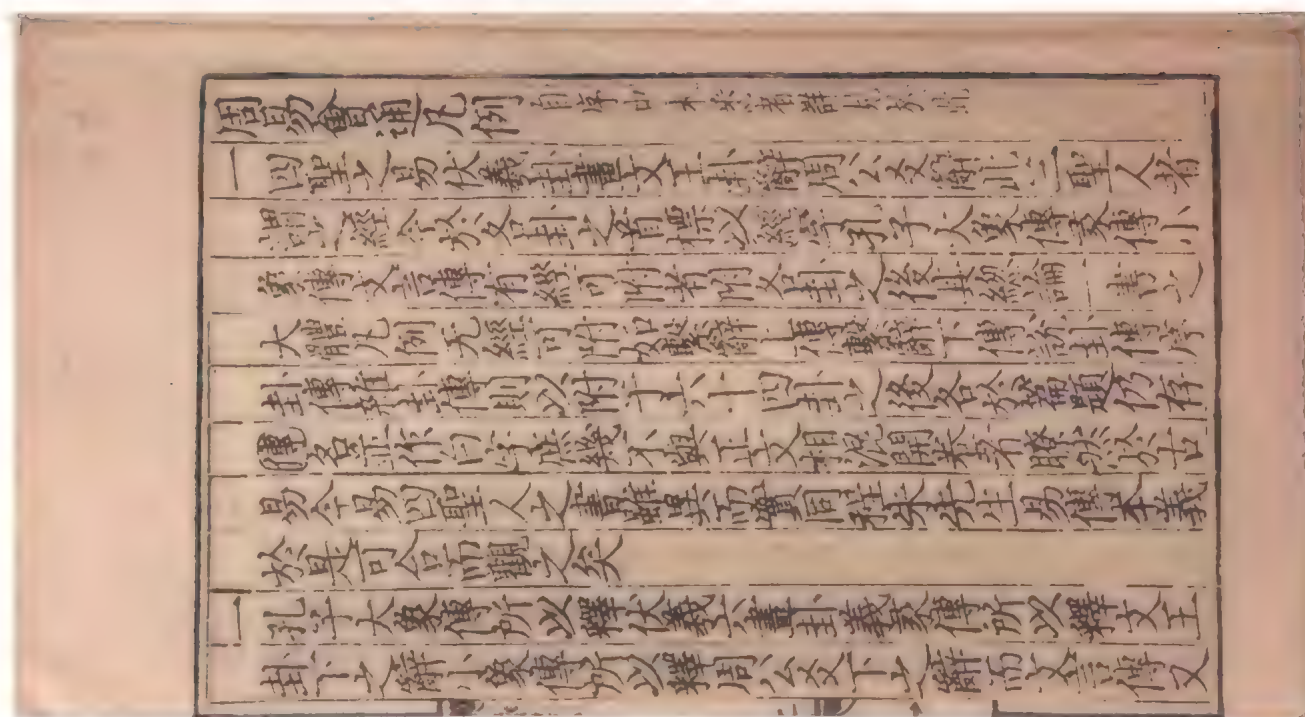 周易會通凡例 自序 未悉者詳見於此
一四聖之易伏羲卦畫文王卦辭周公爻辭此三聖人者
謂之經今於各卦之首標以經字孔子大象傳彖傳小
象傳文言傳有經可附者附各卦之後其總論一書之
大體凡例无經可附如繫辭上傳繫辭下傳說卦傳序
卦傳雜卦傳則以附于六十四卦之後各於篇題仍存
傳名並作白字庶幾不與正文相混開卷者瞭然於古
易今易四聖人之書雖異而實同程朱先生易傳本義
於是可合而觀之矣
一孔子大象傳所以釋伏羲六畫卦義彖傳所以釋文王
卦下之辭小象傳所以釋周公爻下之辭而文言傳又